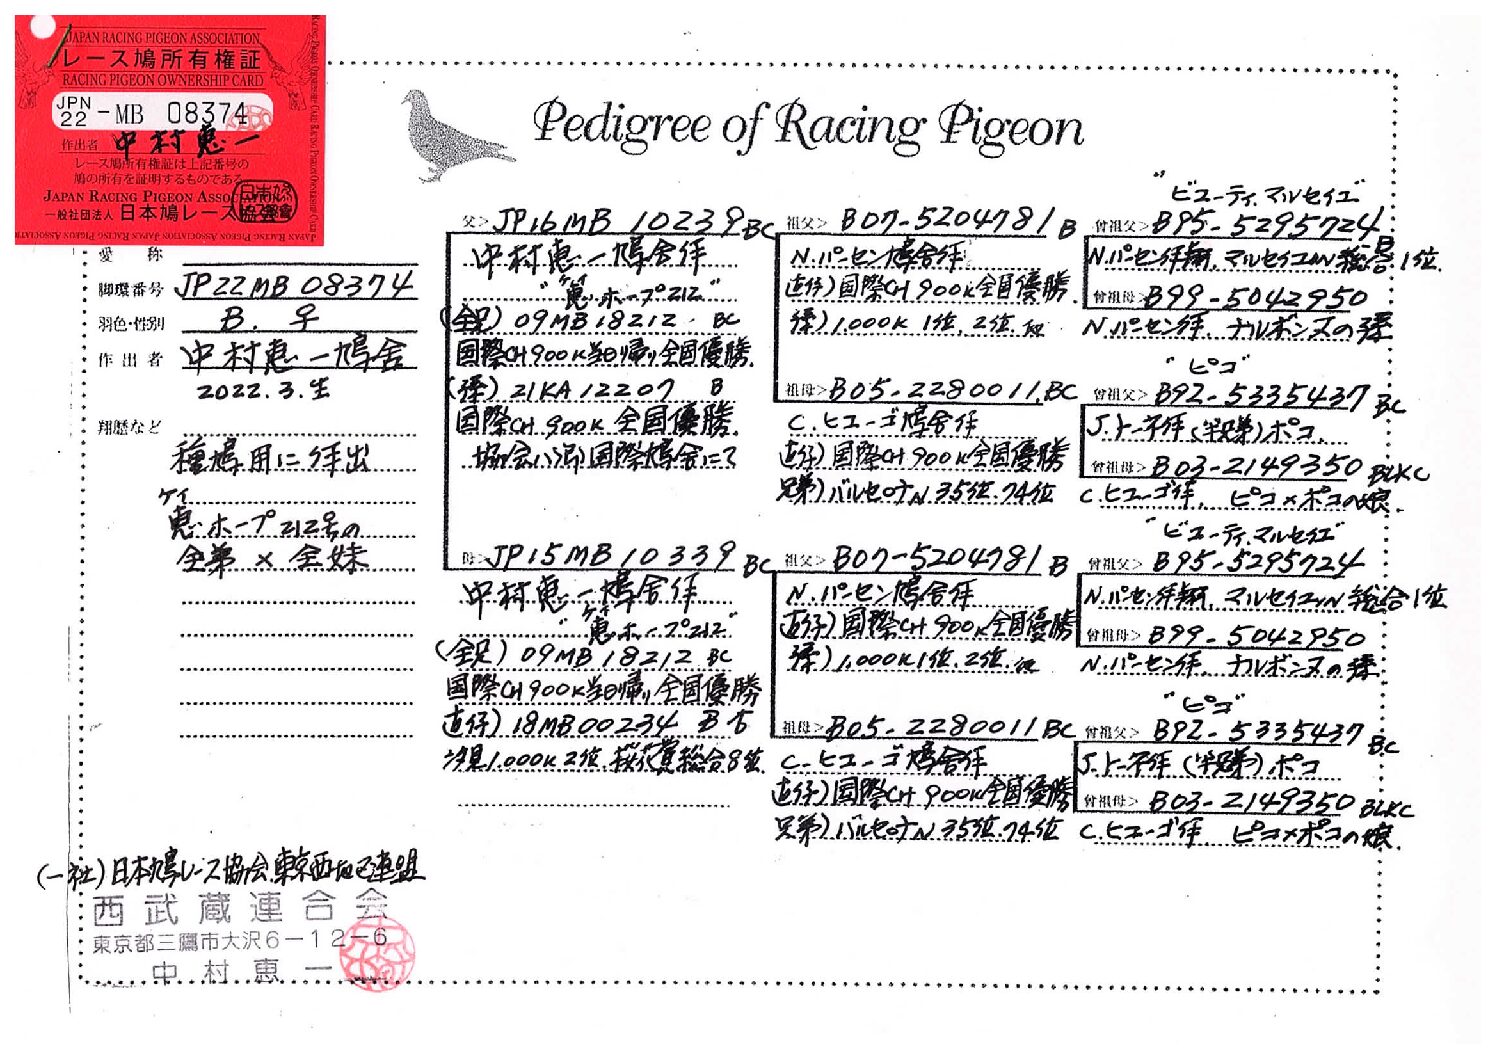 JAPAN RACING PIGEON ASSOCIATION
レース鳩所有権証
RACING PIGEON OWNERSHIP CARD
JPN 22 -MB 08374
作出者 中村恵一
レース鳩所有権証は上記番号の
鳩の所有を証明するものである
JAPAN RACING PIGEON ASSOCIATION
一般社団法人 日本鳩レース協会
Pedigree of Racing Pigeon
愛称
脚環番号 JP22MB08374
羽色・性別 B. ♀
作出者 中村恵一鳩舎
2022.3.生
翔歴など
種鳩用に作出
ケイ
恵ホープ212号の
全弟×全妹
父> JP16MB 10239 BC
中村恵一鳩舎作
ケイ
"恵ホープ212"
(全兄) 09MB18212 BC
国際CH900K当日帰り全国優勝
(孫) 21KA12207 B
国際CH900K全国優勝
協会八郷国際鳩舎にて
母> JP15MB10339 BC
中村恵一鳩舎作
ケイ
"恵ホープ212"
(全兄) 09MB18212 BC
国際CH900K当日帰り全国優勝
直仔) 18MB00234 B
汐見1.000K2位 総合8位
祖父> B07-5204781 B
N.パーセン鳩舎作
直仔)国際CH900K全国優勝
孫)1.000K 1位.2位.
祖母> B05-2280011 BC
C.ヒューゴ鳩舎作
直仔)国際CH900K全国優勝
兄弟)バルセロナN35位.74位
祖父> B07-5204781 B
N.パーセン鳩舎作
直仔)国際CH900K全国優勝
孫)1.000K1位.2位.
祖母> B05-2280011 BC
C.ヒューゴ鳩舎作
直仔)国際CH900K全国優勝
兄弟)バルセロナN35位.74位
"ビューティ.マルセイユ"
曾祖父> B95-5295724 B
N.パーセン作翔.マルセイユIN総合1位
曾祖母> B99-5042950
N.パーセン作.ナルボンヌの孫
"ピコ"
曾祖父> B92-5335437 BC
J.トーネ作(半兄弟)ポコ
曾祖母> B03-2149350 BLKC
C.ヒューゴ作.ピコ×ポコの娘
"ビューティ.マルセイユ"
B95-5295724
N.パーセン作翔.マルセイユIN総合1位
曾祖母> B99-5042950
N.パーセン作.ナルボンヌの孫
"ピコ"
曾祖父> B92-5335437 BC
J.トーネ作(半兄弟)ポコ
曾祖母> B03-2149350 BLKC
C.ヒューゴ作 ピコ×ポコの娘
(一社)日本鳩レース協会.東京西地区連盟
西武蔵連合会
東京都三鷹市大沢6-12-6
中村恵一